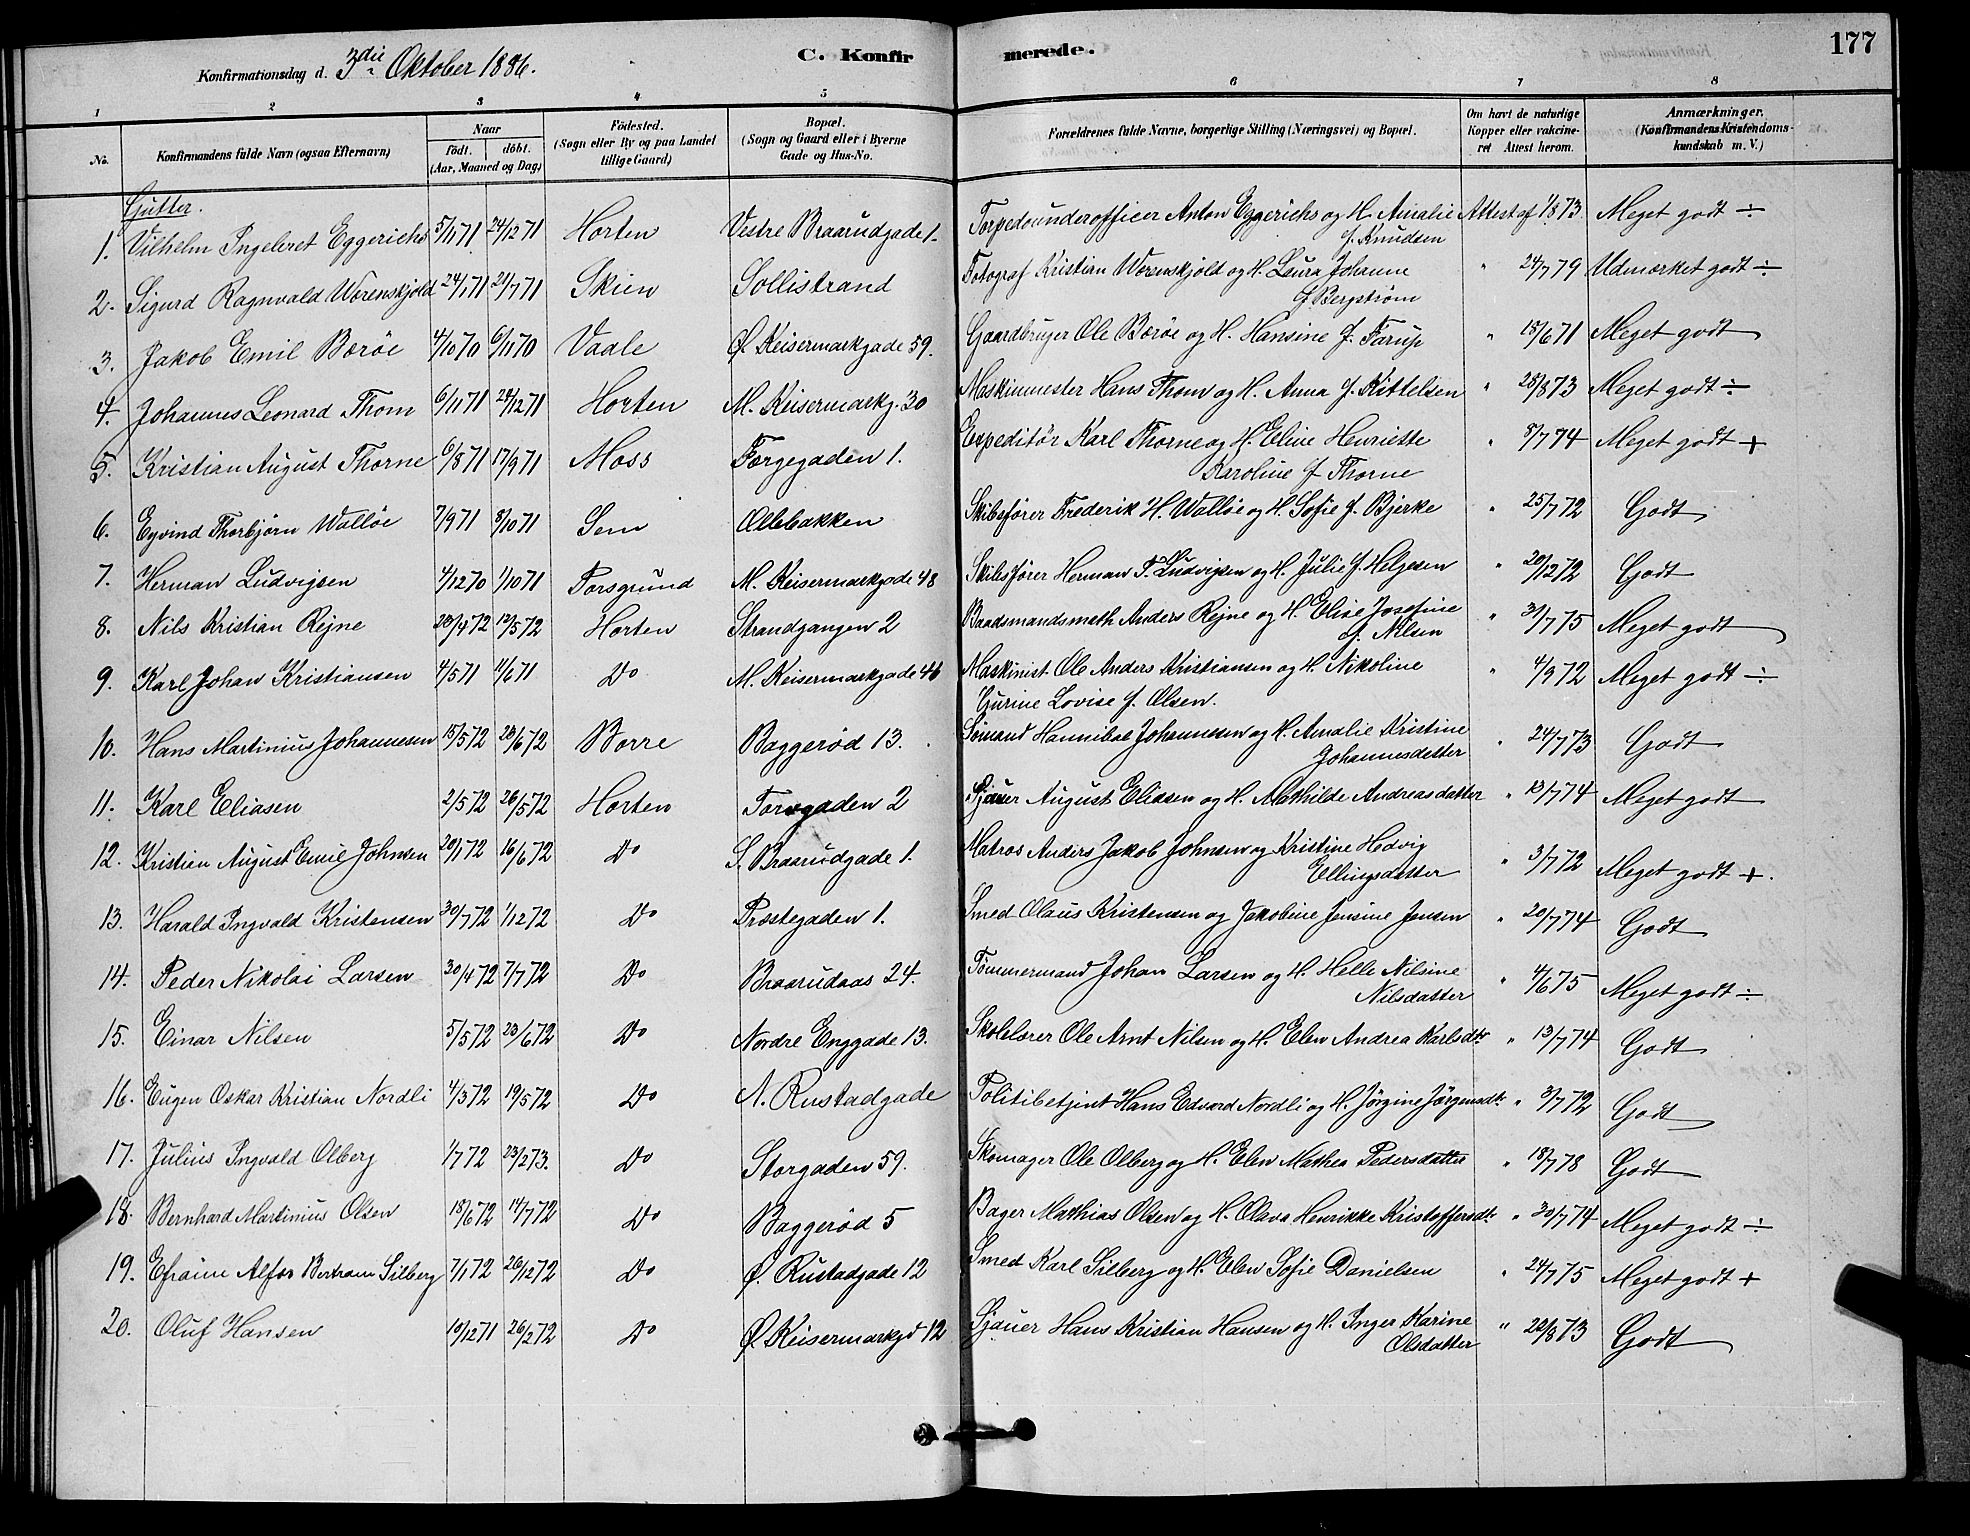 Konfirmationsdag d. 3die Oktober 1886. C. Konfirmerede. 177
1 2 3 4 5 6 7 8
No. Konfirmandens fulde Navn (ogsaa Efternavn) Naar födt. döbt. (Aar, Maaned og Dag) Födested. (Sogn eller By og paa Landet tillige Gaard) Bopæl. (Sogn og Gaard eller i Byerne Gade og Hus-No. Forældrenes fulde Navne, borgerlige Stilling (Næringsvei) og Bopæl. Om havt de naturlige Kopper eller vakcineret Attest herom. Anmærkninger. (Konfirmandens Kristendomskundskab m. V.)
Gutter.
1. Vilhelm Ingebret Eggerichs 5/11 71 24/12 71 Horten Vestre Braarudgade 1. Torpedounderofficer Anton Eggerichs og H. Amalie Attest af 1/8 73. Meget godt ÷
f. Knudsen
2. Sigurd Ragnvald Worenskjold 24/1 71 21/7 71 Skien Sollistrand Fotograf Kristian Worenskjold og H. Laura Johanne " 24/7 79 Udmærket godt ÷
f. Bergström
3. Jakob Emil Børöe 4/10 70 6/11 70 Vaale Ø. Keisermarkgade 59. Gaardbruger Ole Børöe og H. Hansine f. Farup " 15/6 71 Meget godt
4. Johannes Leonard Thom 6/11 71 28/12 71 Horten M. Keisermarkg. 30 Maskinmester Hans Thom og H. Anna f. Kittelsen " 25/8 73 Meget godt ÷
5. Kristian August Thorne 6/8 71 17/9 71 Moss Færgegaden 1. Expeditör Karl Thorne og H. Eline Henriette " 8/7 74 Meget godt +
Karoline f. Thorne
6. Eyvind Thorbjörn Wallöe 7/9 71 8/10 71 Sem Ollebakken Skibsfører Frederik H. Wallöe og H. Sofie f. Bjerke " 25/7 72 Godt
7. Herman Ludvigsen 4/12 70 1/10 71 Porsgrund M. Keisermarkgade 48 Skibsfører Herman T. Ludvigsen og H. Julie f. Helgesen " 20/12 72 Godt
8. Nils Kristian Rejne 28/4 72 12/5 72 Horten Strandgangen 2 Baadsmandsmath Anders Rejne og H. Elise Josefine " 31/7 75 Meget godt
f. Nilsen
9. Karl Johan Kristiansen 4/5 71 11/6 71 Do M. Keisermarkgade 46 Maskinist Ole Anders Kristiansen og H. Nikoline " 4/9 72 Meget godt ÷
Gurine Lovise f. Olsen.
10. Hans Martinius Johannesen 15/5 72 23/6 72 Borre Baggerød 13. Sömand Hannibal Johannesen og H. Amalie Kristine " 24/7 73 Godt
Johannesdatter
11. Karl Eliasen 2/5 72 26/5 72 Horten Torvgaden 2 Sjauer August Eliasen og H. Mathilde Andreasdatter " 13/7 74 Meget godt
12. Kristian August Emil Johnsen 20/1 72 16/6 72 Do S. Braarudgade 1. Matros Anders Jakob Johnsen og Kristine Hedvig " 3/7 72 Meget godt +.
Ellingsdatter
13. Harald Ingvald Kristensen 30/7 72 1/12 72 Do Præstegaden 1. Smed Olaus Kristensen og Jakobine Jensine Jensen " 20/7 74 Godt
14. Peder Nikolai Larsen 30/4 72 7/7 72 Do Braarudaas 24. Tömmermand Johan Larsen og H. Helle Nilsine " 4/6 75 Meget godt ÷
Nilsdatter
15. Einar Nilsen 5/5 72 23/6 72 Do Nordre Enggade 13. Skolelærer Ole Arnt Nilsen og H. Elen Andrea Karlsdtr " 13/7 74 Godt
16. Eugen Oskar Kristian Nordli 4/3 72 19/5 72 Do N. Rustadgade Politibetjent Hans Edvard Nordli og H. Jörgine Jörgensdtr " 3/7 72 Godt
17. Julius Ingvald Olberg 1/7 72 23/2 73. Do Storgaden 59. Skomager Ole Olberg og H. Elen Mathea Pedersdatter " 18/7 78 Godt
18. Bernhard Martinius Olsen 18/6 72 14/7 72 Do Baggerød 5 Bager Mathias Olsen og H. Olava Henrikke Kristoffersdt. " 30/7 74 Meget godt ÷
19. Efraim Alfos Bertram Silberg 7/1 72 26/12 72 Do Ø. Rustadgade 12 Smed Karl Silberg og H. Elen Sofie Danielsen " 24/7 75 Meget godt +
20. Oluf Hansen 19/12 71 26/2 72 Do Ø. Keisermarkgd 12 Sjauer Hans Kristian Hansen og H. Inger Karine " 22/8 73 Godt
Olsdatter